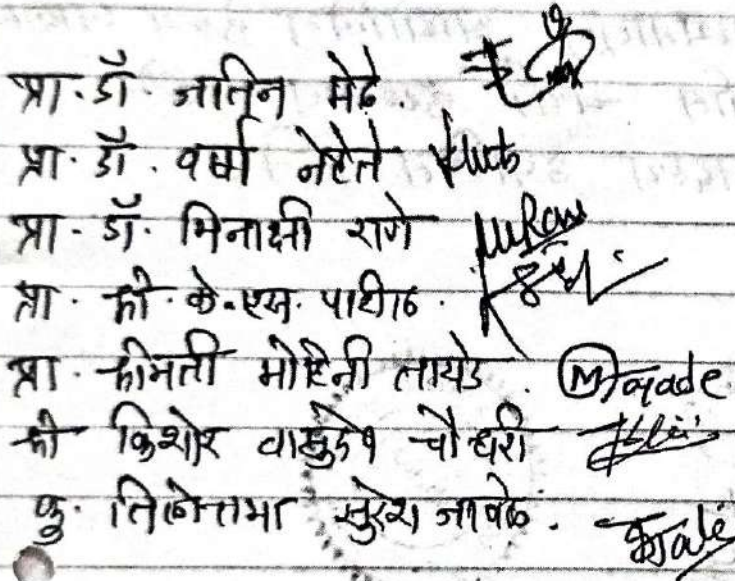 प्रा. डॉ. जतिन मेढे.
प्रा. डॉ. वर्षा नेहेते
प्रा. डॉ. मिनाक्षी राणे
प्रा. श्री. के. एस. पाटील.
प्रा. श्रीमती मोहिनी तायडे. Mtayade
श्री किशोर वासुदेव चौधरी
कु. तिलोत्तमा सुरेश जावळे.